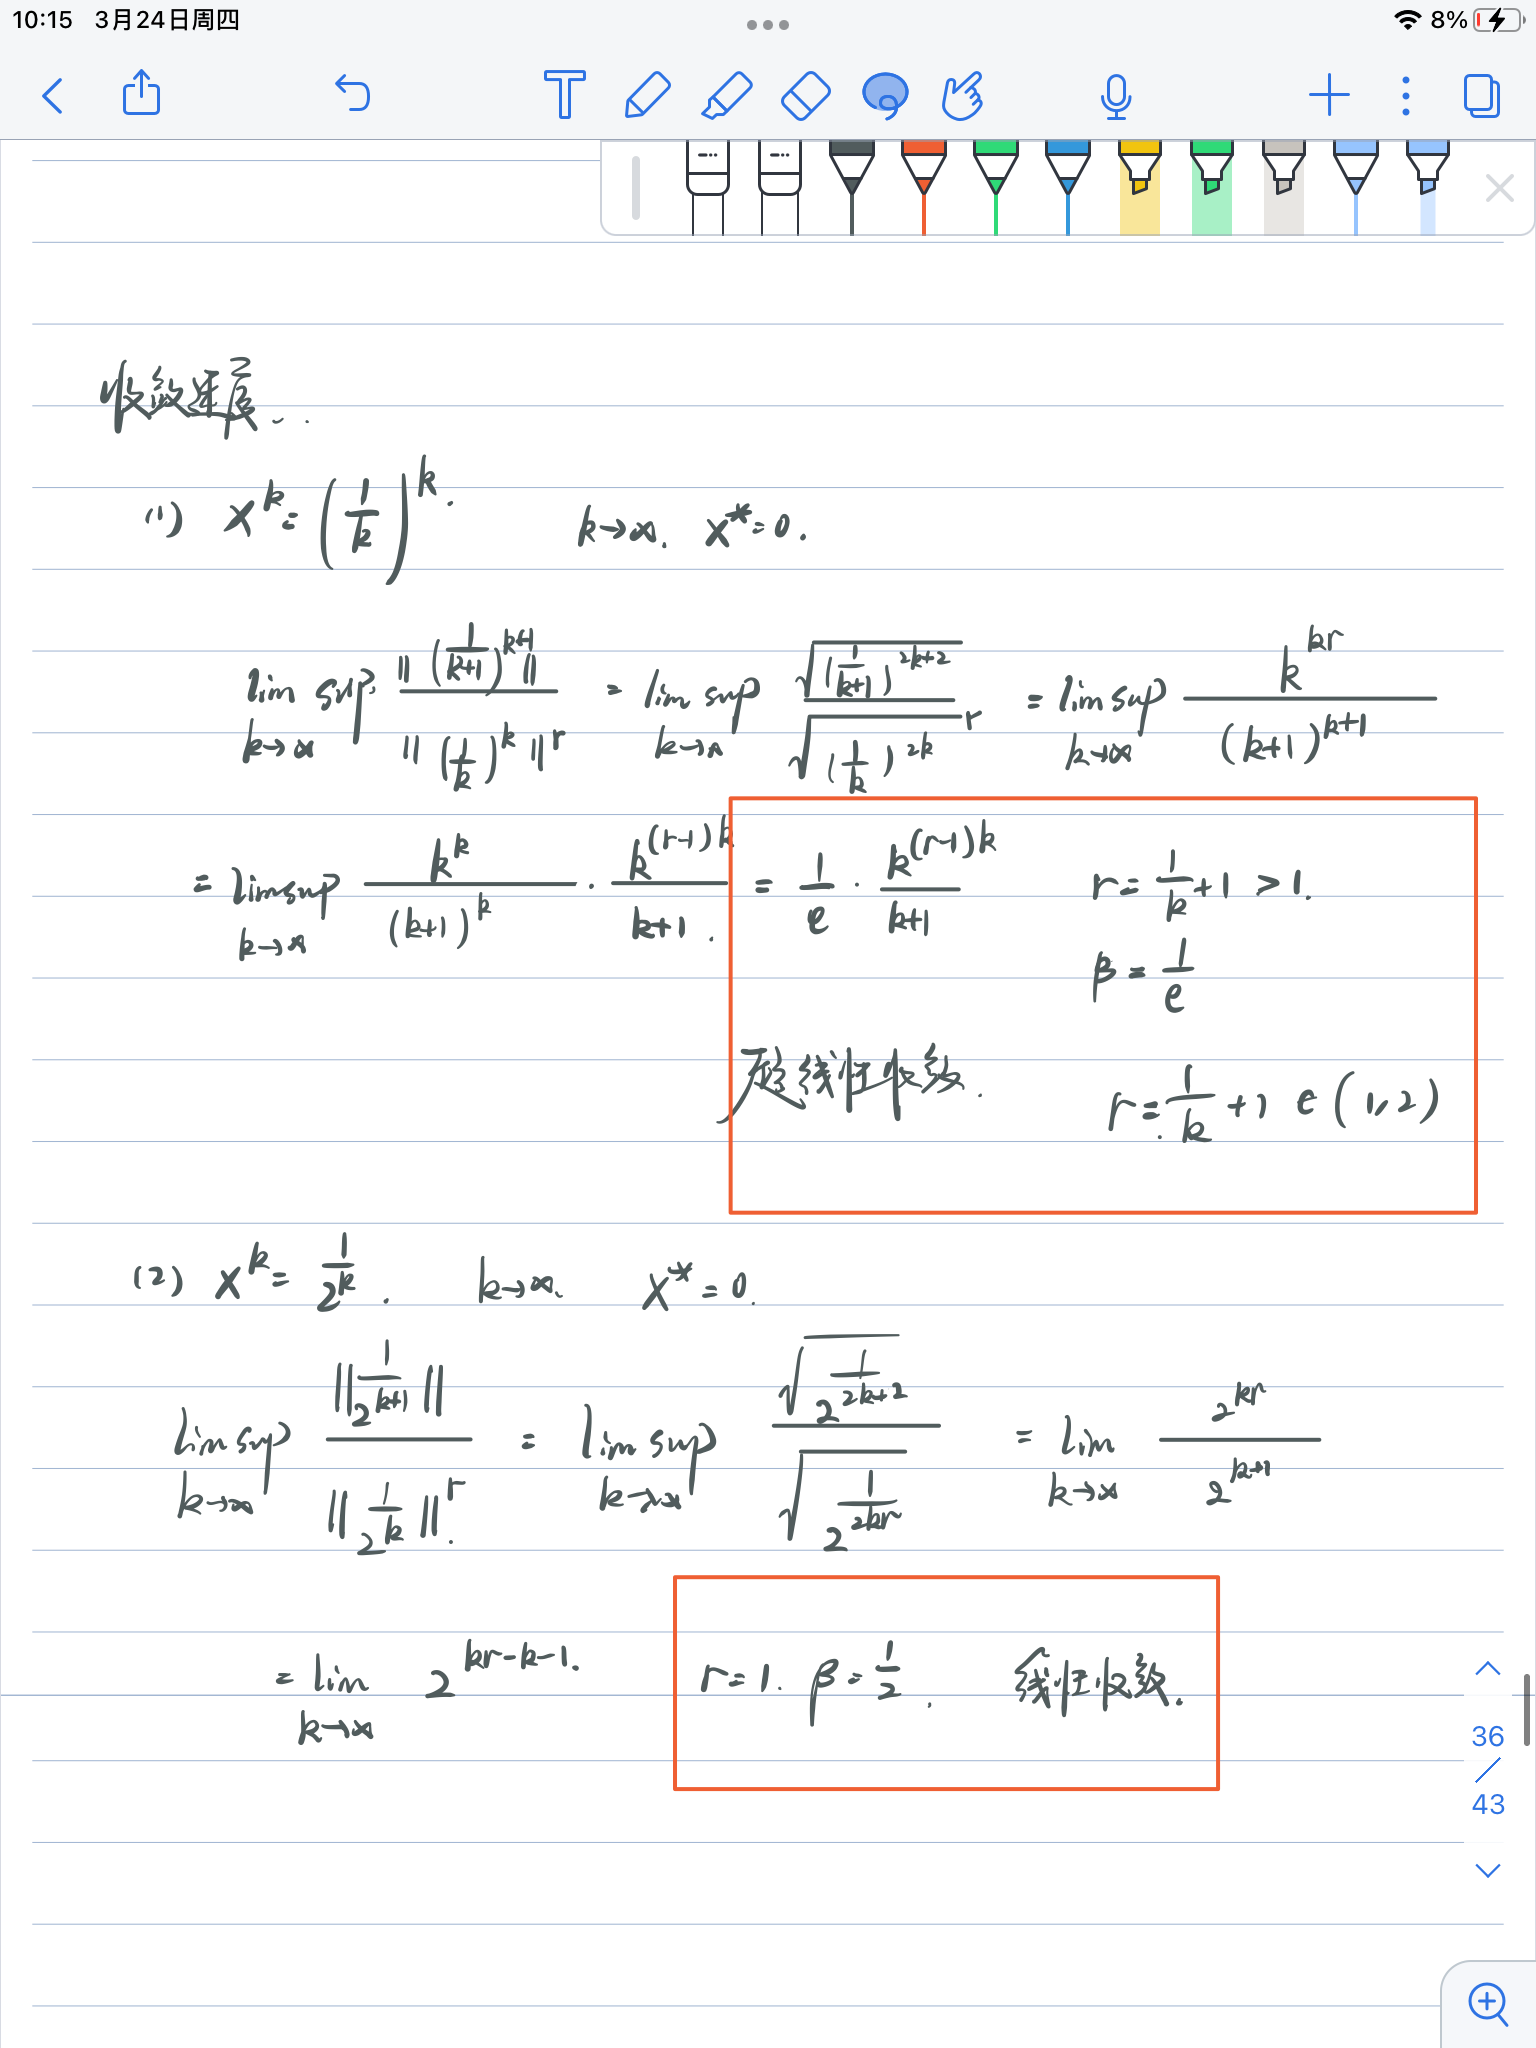 10:15 3月24日周四 8%
收敛速度...
(1) x^k = (1/k)^k. k→∞. x^* = 0.
lim sup_{k→∞} ‖(1/(k+1))^{k+1}‖ / ‖(1/k)^k‖^r = lim sup_{k→∞} √((1/(k+1))^{2k+2}) / √((1/k)^{2k})^r = lim sup_{k→∞} k^{kr} / (k+1)^{k+1}
= lim sup_{k→∞} k^k / (k+1)^k · k^{(r-1)k} / (k+1). = 1/e · k^{(r-1)k} / (k+1) r = 1/k + 1 > 1.
β = 1/e
超线性收敛. r = 1/k + 1 ∈ (1, 2)
(2) x^k = 1/2^k. k→∞. x^* = 0.
lim sup_{k→∞} ‖1/2^{k+1}‖ / ‖1/2^k‖^r. = lim sup_{k→∞} √(1/2^{2k+2}) / √(1/2^{2kr}) = lim_{k→∞} 2^{kr} / 2^{k+1}
= lim_{k→∞} 2^{kr-k-1}. r = 1. β = 1/2. 线性收敛.
36
/
43